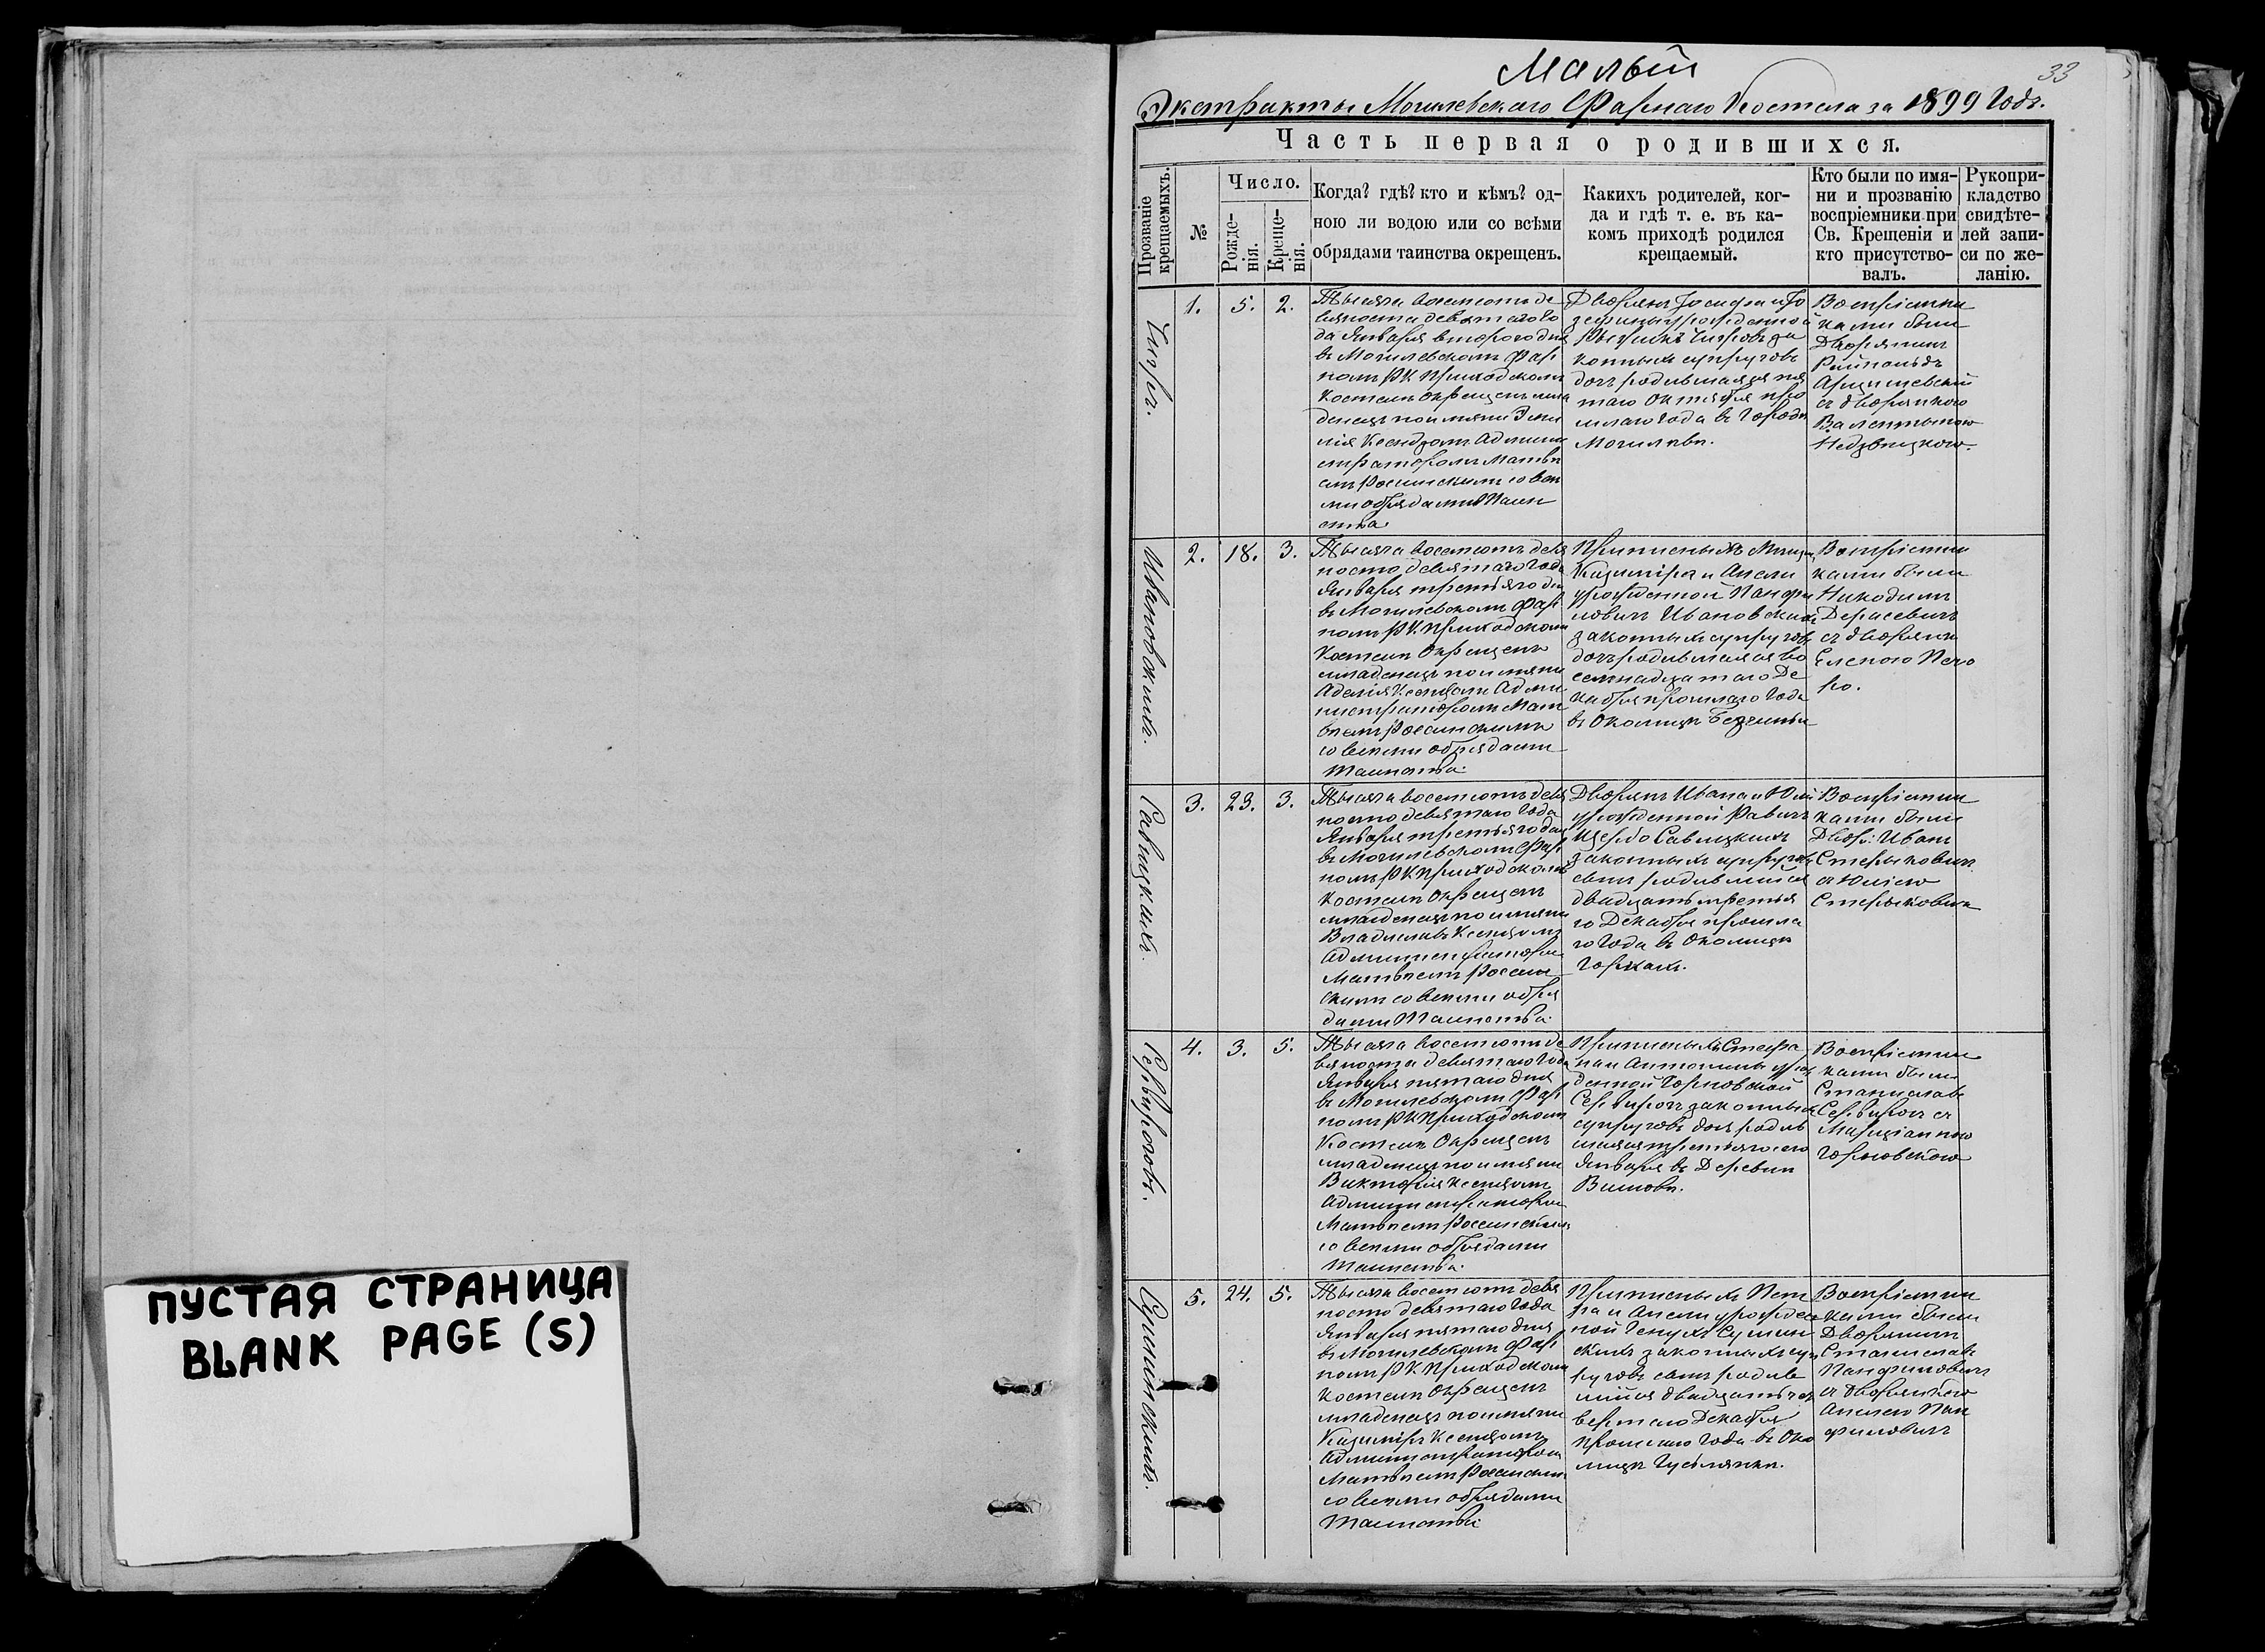 ПУСТАЯ СТРАНИЦА
BLANK PAGE (S)
Малый
33
Экстракты Могилевского Фарнаго Костела за 1899 Годъ.
Часть первая о родившихся.
Прозваніе
крещаемыхъ.
№
Число.
Рожде-
нія.
Креще-
нія.
Когда? гдѣ? кто и кѣмъ? од-
ною ли водою или со всѣми
обрядами таинства окрещенъ.
Какихъ родителей, ког-
да и гдѣ т. е. въ ка-
комъ приходѣ родился
крещаемый.
Кто были по имя-
ни и прозванію
воспріемники при
Св. Крещеніи и
кто присутство-
валъ.
Рукопри-
кладство
свидѣте-
лей запи-
си по же-
ланію.
1.
5.
2.
Тысяча восемсотъ де
вяноста девятаго Го
да Января второго дня
въ Могилевскомъ Фар
номъ РК Приходскомъ
Костелѣ Окрещенъ мла
денецъ по имяни Эми
лія Ксендзомъ Админи
страторомъ Матвѣ
емъ Росинскимъ со всѣ
ми обрядами Таин
ства.
Дворянъ Іосифа и Іо
зефины урожденной
законныхъ супруговъ
дочь родившаяся пя
таго Октября про
шлаго Года въ Городѣ
Могилевѣ.
Воспріемни
ками были
Дворянинъ
съ дворянкою
Валентиною
2.
18.
3.
Ивановскихъ.
Тысяча восемсотъ девя
носто девятаго Года
Января третьяго дня
въ Могилевскомъ Фар
номъ РК. Приходскомъ
Костелѣ Окрещенъ
младенецъ по имяни
Аделія Ксендзомъ Адми
нистраторомъ Мат
вѣемъ Росинскимъ
со всѣми обрядами
Таинства.
Казиміра и Анели
урожденной Панфи
ловичъ Ивановскихъ
законныхъ супруговъ
дочь родившаяся во
семнадцатаго Де
кабря прошлаго Года
въ Околицѣ
Воспріемни
ками были
Никодимъ
съ дворянк
Еленою
3.
23.
3.
Савицкихъ.
Тысяча восемсотъ девя
носто девятаго Года
Января третьяго дня
въ Могилевскомъ Фар
номъ РК Приходскомъ
Костелѣ Окрещенъ
младенецъ по имяни
Владиславъ Ксендзомъ
Администраторомъ
Матвѣемъ Росин
скимъ со всѣми обря
дами Таинства.
Дворянъ Ивана и Юліи
урожденной Равичъ
Щербо Савицкихъ
законныхъ супруговъ
сынъ родившійся
двадцать третья
го Декабря прошла
го Года въ Околицѣ
Горкахъ.
Воспріемни
ками были
Двор: Иванъ
съ Юліею
4.
3.
5.
Тысяча восемсотъ де
вяноста девятаго Года
Января пятаго дня
въ Могилевскомъ Фар
номъ РК Приходскомъ
Костелѣ Окрещенъ
младенецъ по имяни
Викторія Ксендзомъ
Администраторомъ
Матвѣемъ Росинскимъ
со всѣми обрядами
Таинства.
Стефа
на и Антонины урож
денной Горновской
законныхъ
супруговъ дочь родив
шаяся третьяго сего
Января въ Деревнѣ
Воспріемни
ками были
Станиславъ
съ
Маріанною
Горновскою
5.
24.
5.
Сушинскихъ.
Тысяча восемсотъ девя
носто девятаго Года
Января пятаго дня
въ Могилевскомъ Фар
номъ РК Приходскомъ
Костелѣ Окрещенъ
младенецъ по имяни
Казиміръ Ксендзомъ
Администраторомъ
Матвѣемъ Росинскимъ
со всѣми обрядами
Таинства.
Пет
ра и Анели урожден
ной
законныхъ суп
руговъ сынъ родив
шійся двадцать чет
вертаго Декабря
прошлаго Года въ Око
лицѣ
Воспріемни
ками были
Дворянинъ
Станиславъ
Панфиловичъ
съ Дворянкою
Анелею Пан
филовичъ